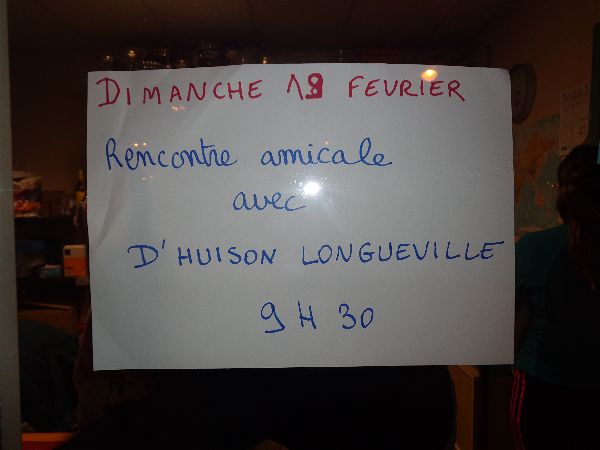 DIMANCHE 18 FEVRIER
Rencontre amicale
avec
D'HUISON LONGUEVILLE
9 H 30